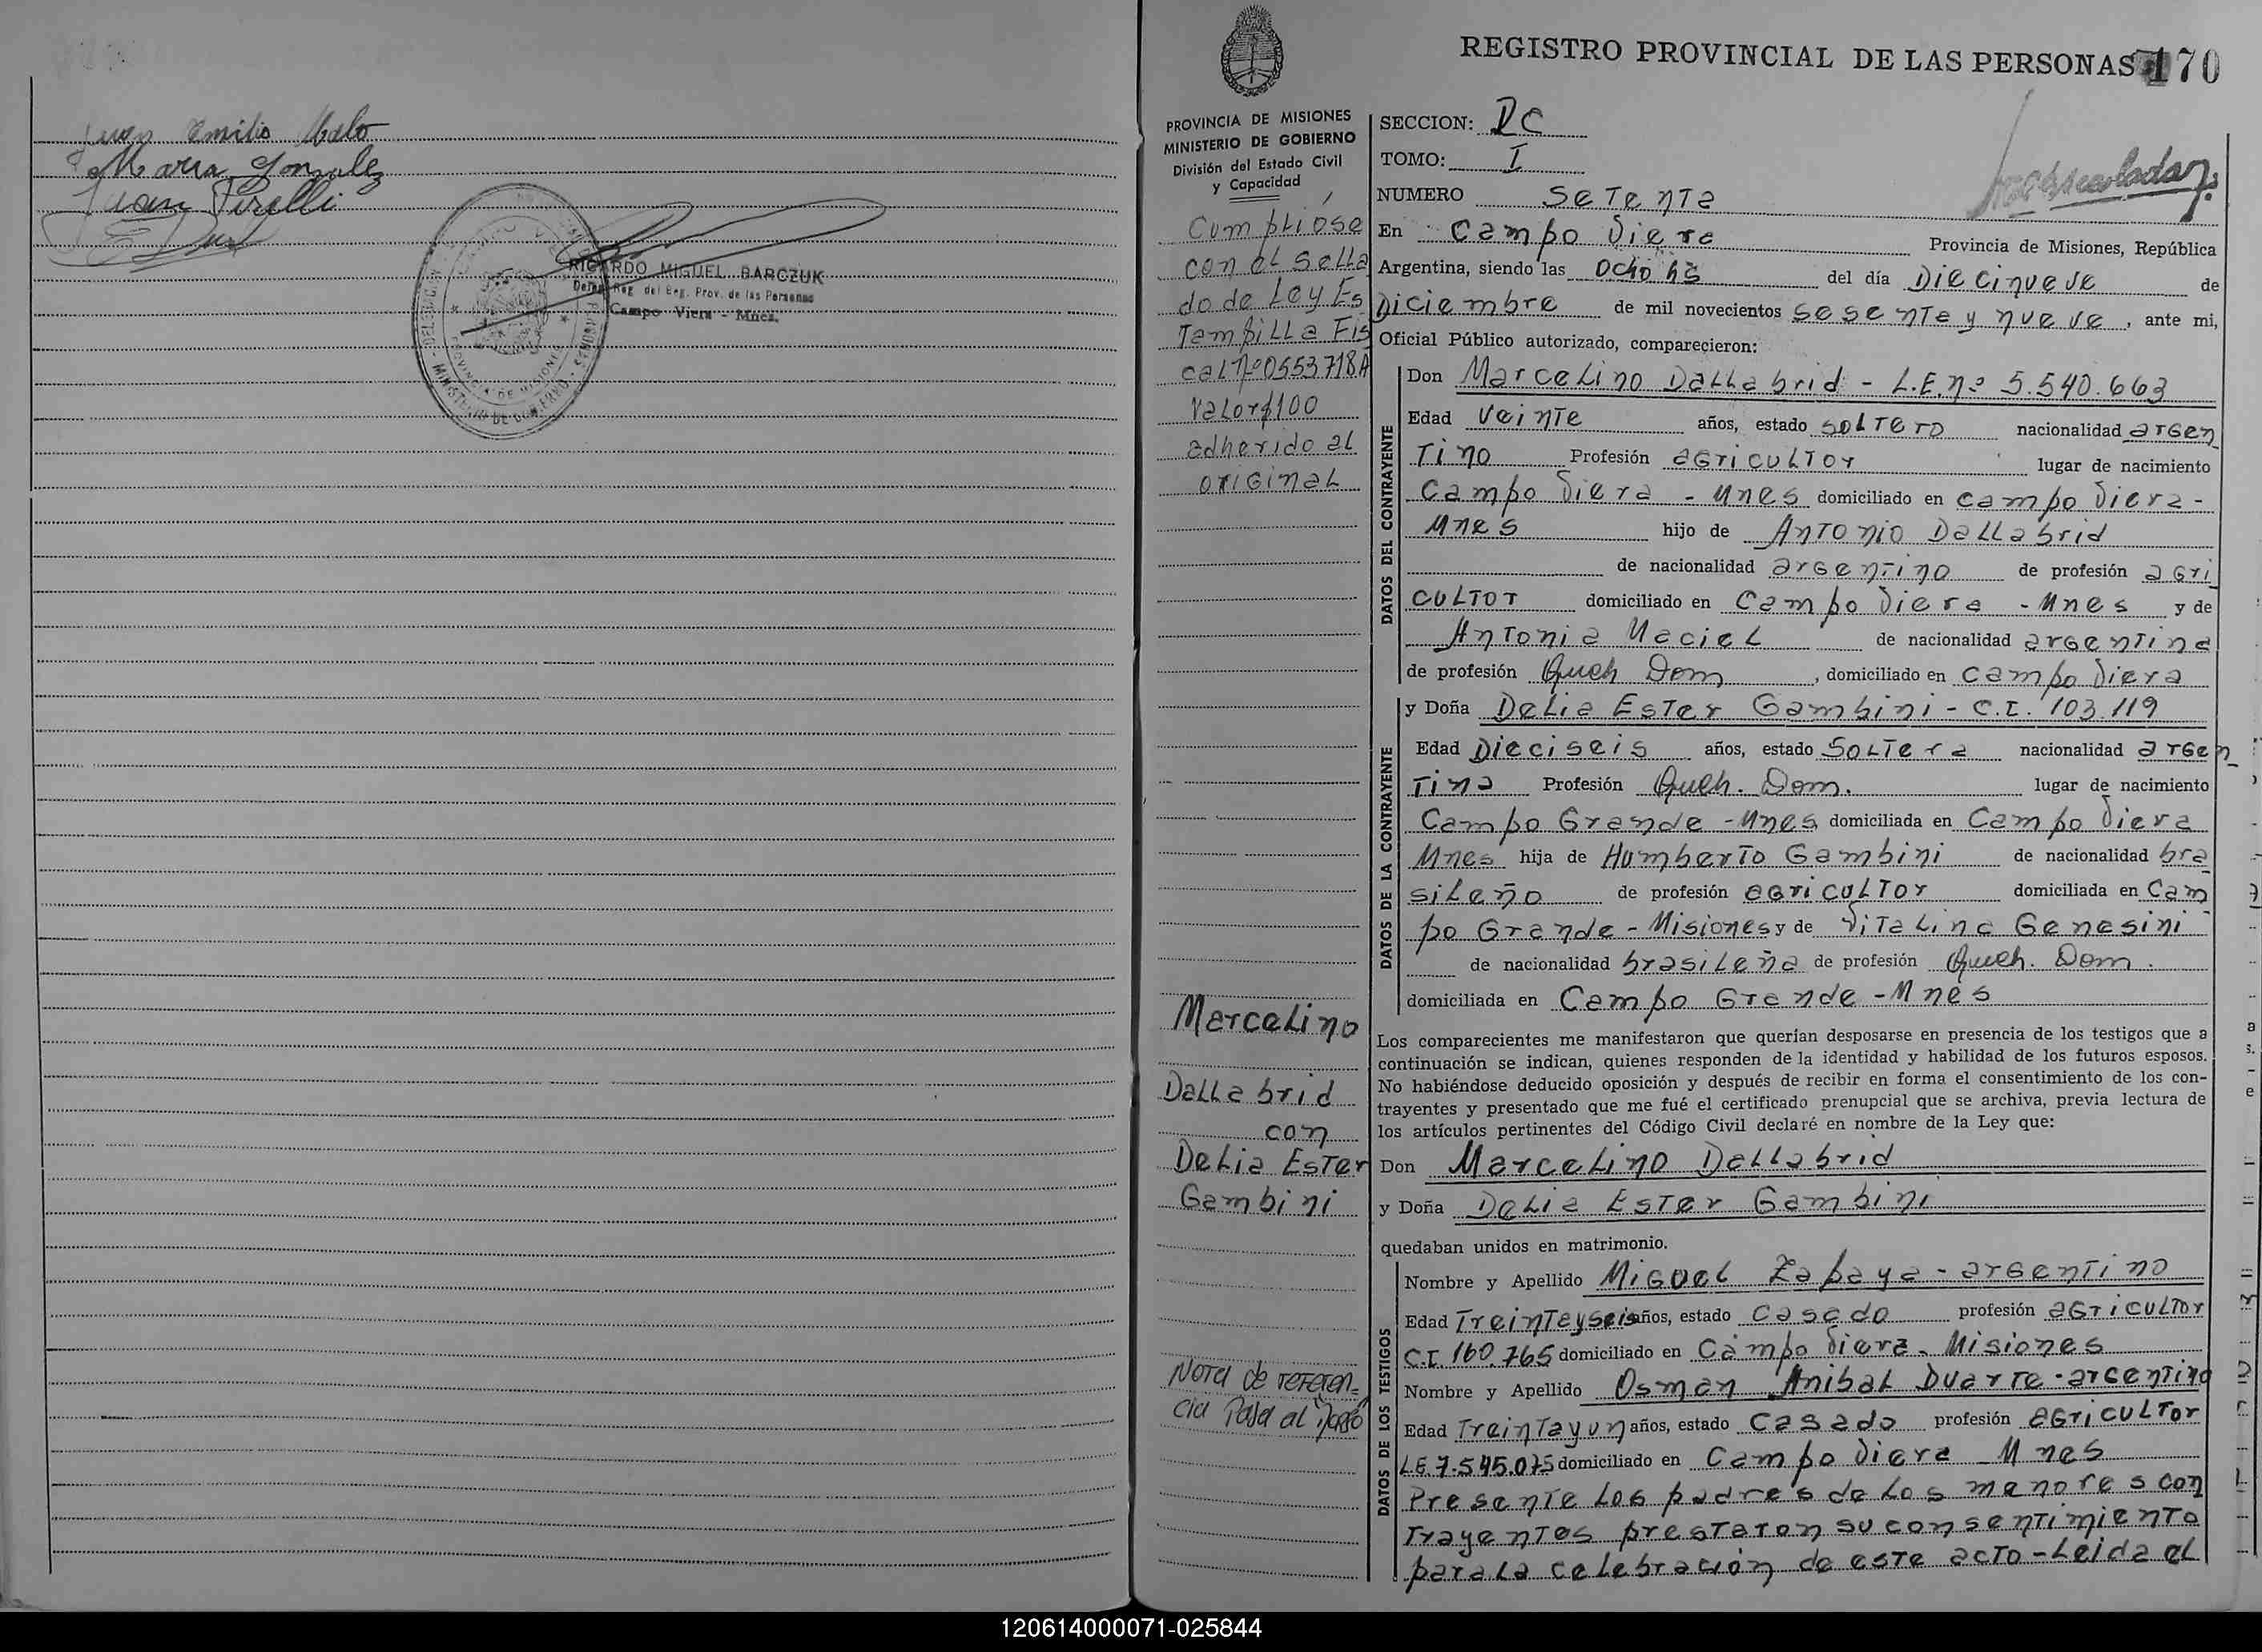 Juan Emilio Melo
Maria Gonzalez
Juan Pirelli
RICARDO MIGUEL BARCZUK
Deleg. Reg. del Reg. Prov. de las Personas
Campo Viera - Mnes.
MINISTERIO DE GOBIERNO
PROVINCIA DE MISIONES
REGISTRO PROVINCIAL DE LAS PERSONAS 170
PROVINCIA DE MISIONES
MINISTERIO DE GOBIERNO
División del Estado Civil
y Capacidad
Cumplióse
con el sella
do de Ley Es
tampilla Fis
cal Nº 0553718A
Valor $100
adherido al
original
Marcelino
Dallabrid
con
Delia Ester
Gambini
Nota de referen=
cia Pasa al Dorso
SECCION: DC
TOMO: I
NUMERO Setenta
En Campo Viera Provincia de Misiones, República
Argentina, siendo las Ocho hs del día Diecinueve de
Diciembre de mil novecientos sesenta y nueve, ante mi,
Oficial Público autorizado, comparecieron:
DATOS DEL CONTRAYENTE
Don Marcelino Dallabrid - L.E. nº 5.540.663
Edad Veinte años, estado soltero nacionalidad argen
tino Profesión agricultor lugar de nacimiento
Campo Viera - Mnes domiciliado en Campo Viera -
Mnes hijo de Antonio Dallabrid
de nacionalidad argentino de profesión agri
cultor domiciliado en Campo Viera - Mnes y de
Antonia Maciel de nacionalidad argentina
de profesión Queh Dom, domiciliado en Campo Viera
DATOS DE LA CONTRAYENTE
y Doña Delia Ester Gambini - C.I. 103.119
Edad Dieciseis años, estado Soltera nacionalidad argen
tina Profesión Queh. Dom. lugar de nacimiento
Campo Grande - Mnes domiciliada en Campo Viera
Mnes hija de Humberto Gambini de nacionalidad bra
sileño de profesión agricultor domiciliada en Cam
po Grande - Misiones y de Vitalina Genesini
de nacionalidad brasileña de profesión Queh. Dom.
domiciliada en Campo Grande - Mnes
Los comparecientes me manifestaron que querían desposarse en presencia de los testigos que a
continuación se indican, quienes responden de la identidad y habilidad de los futuros esposos.
No habiéndose deducido oposición y después de recibir en forma el consentimiento de los con-
trayentes y presentado que me fué el certificado prenupcial que se archiva, previa lectura de
los artículos pertinentes del Código Civil declaré en nombre de la Ley que:
Don Marcelino Dallabrid
y Doña Delia Ester Gambini
quedaban unidos en matrimonio.
DATOS DE LOS TESTIGOS
Nombre y Apellido Miguel Zapaya - argentino
Edad Treintayseis años, estado Casado profesión agricultor
C.I. 160.765 domiciliado en Campo Viera - Misiones
Nombre y Apellido Osman Anibal Duarte - argentino
Edad Treintayun años, estado Casado profesión agricultor
L.E. 7.545.075 domiciliado en Campo Viera Mnes
Presente los padres de los menores con
trayentes prestaron su consentimiento
para la celebración de este acto - Leida el
120614000071-025844